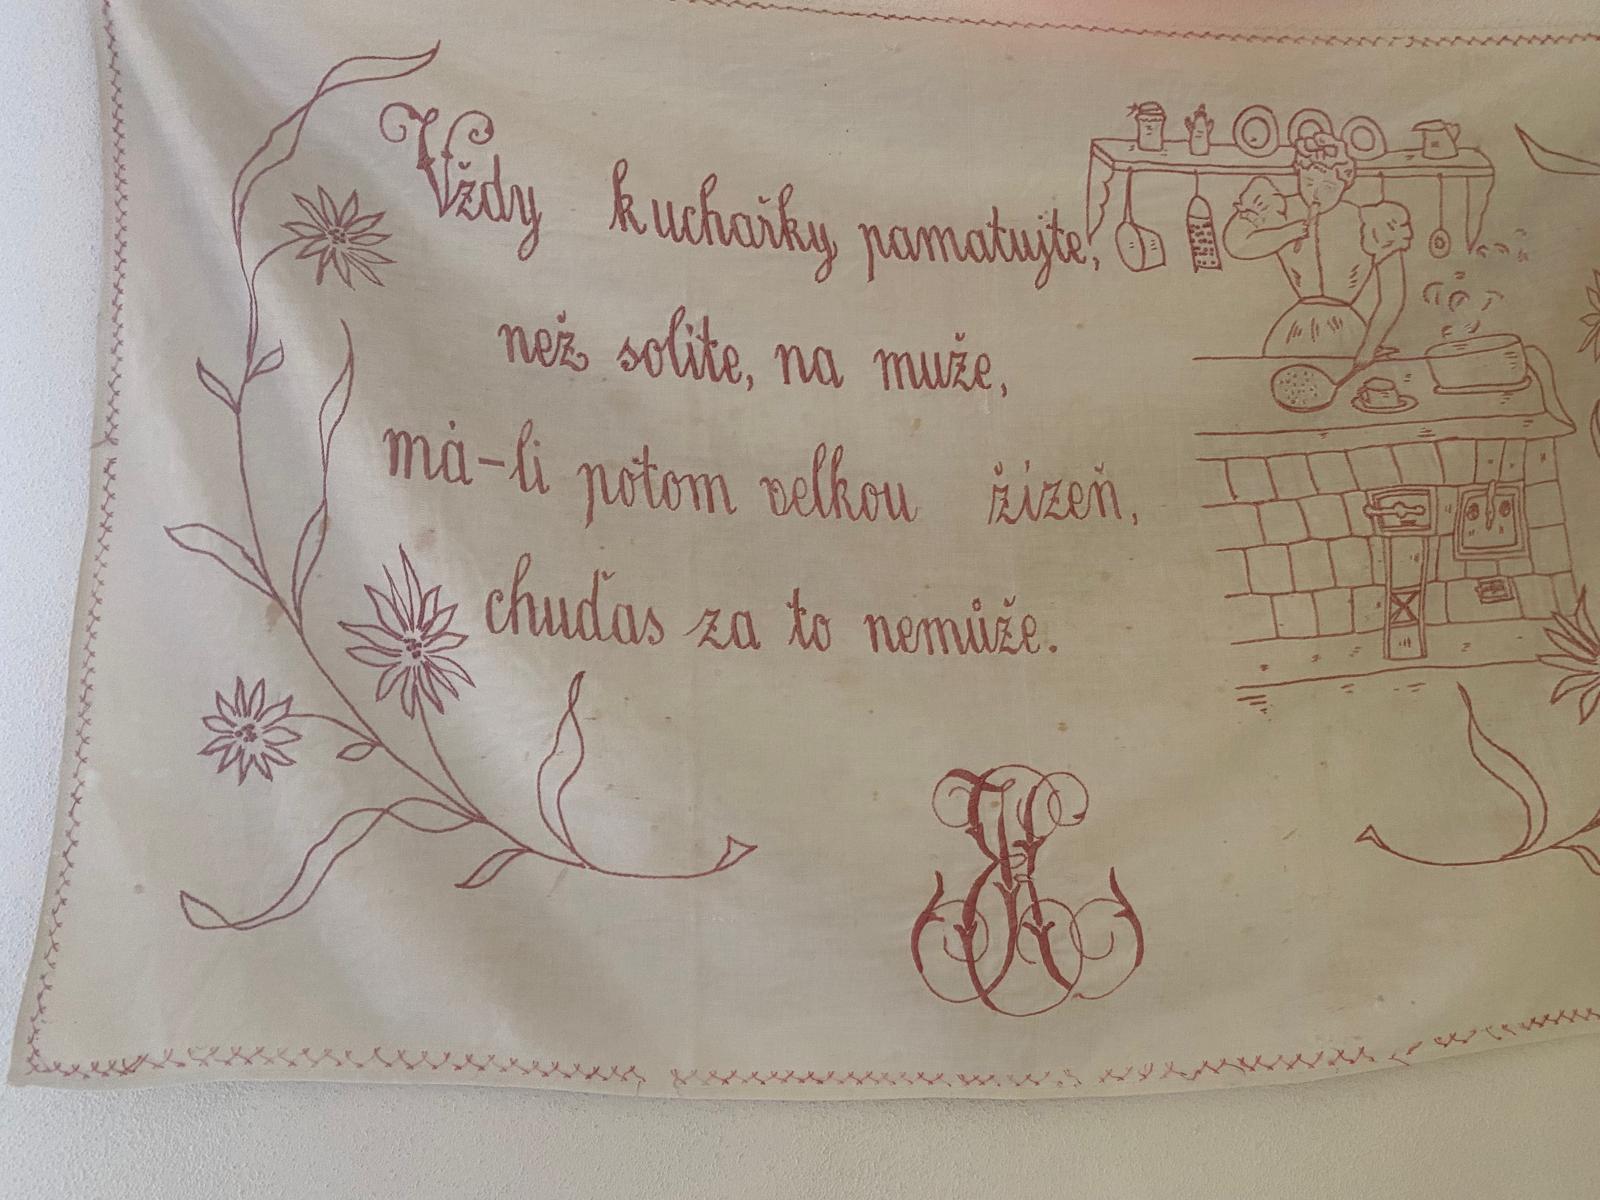 Vždy kuchařky pamatujte,
než solíte, na muže,
má-li potom velkou žízeň,
chuďas za to nemůže.